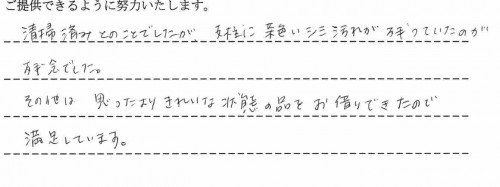 ご提供できるように努力いたします。
清掃済みとのことでしたが 支柱に 茶色いシミ汚れが 残っていたのが
残念でした。
その他は 思ったより きれいな 状態の品を お借りできたので
満足しています。